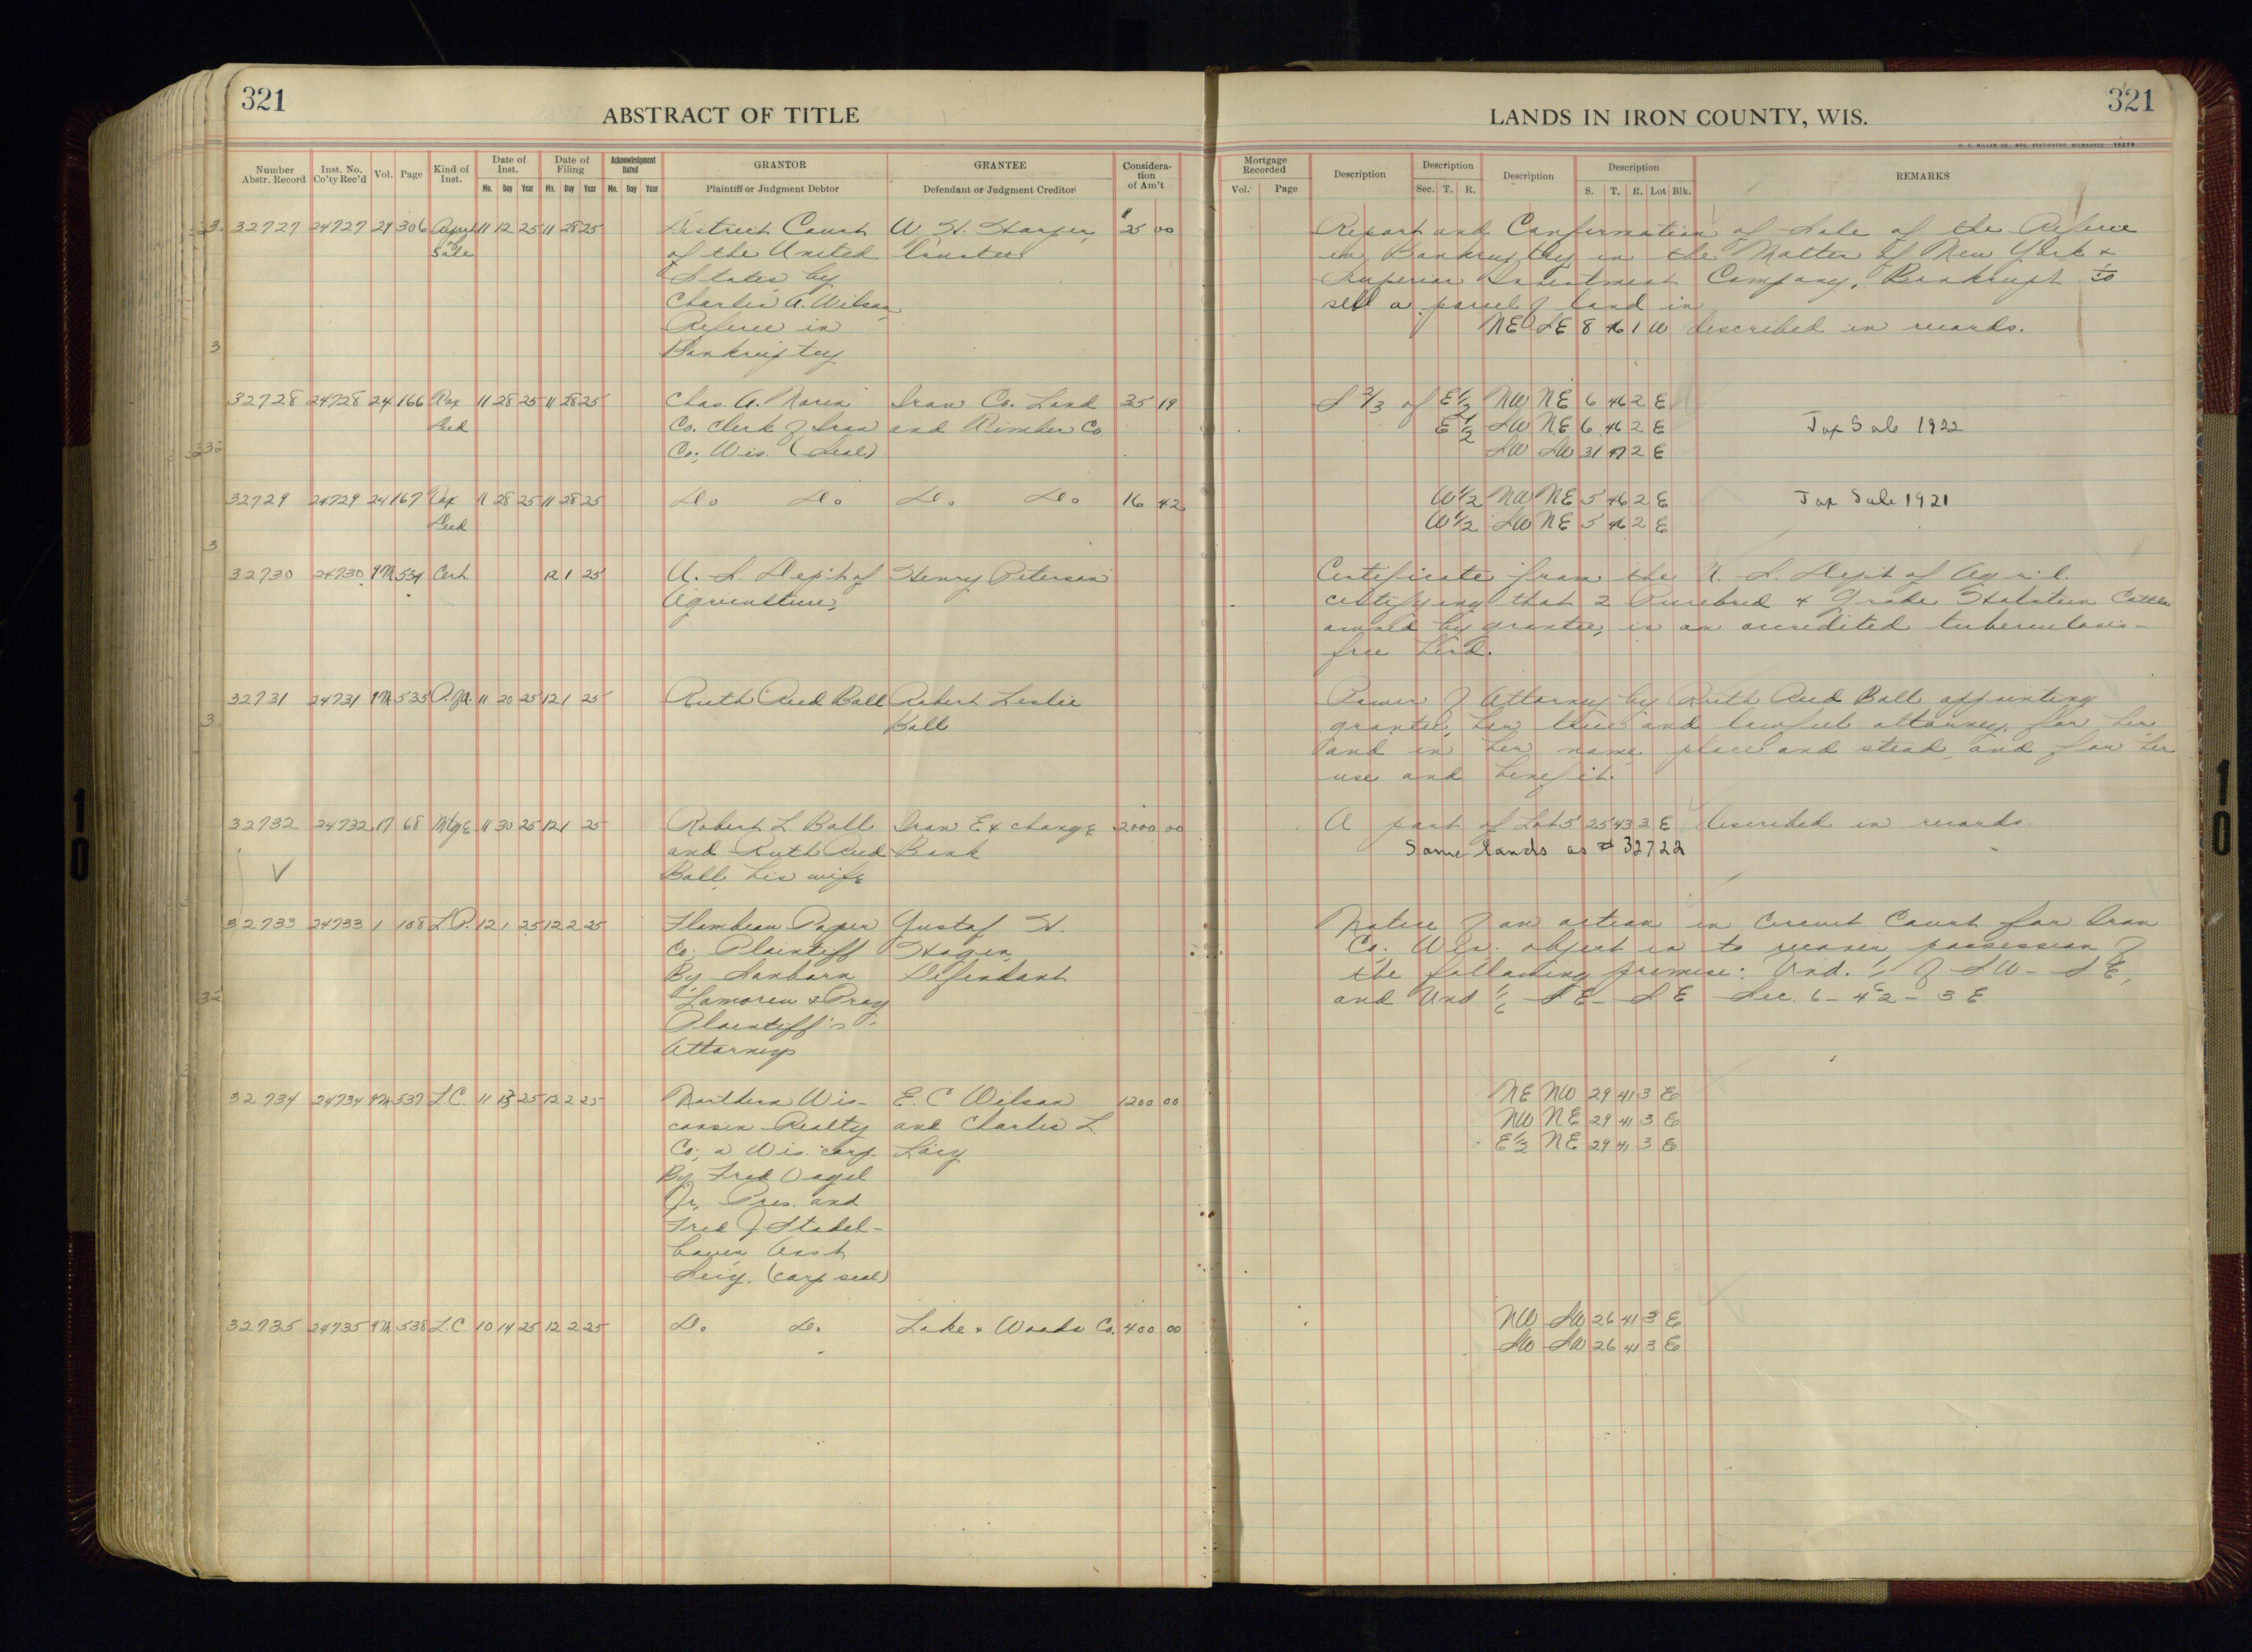 321
ABSTRACT OF TITLE
Number Abstr. Record Inst. No. Co'ty Rec'd Vol. Page Kind of Inst. Date of Inst. Mo. Day Year Date of Filing Mo. Day Year Acknowledgment Dated Mo. Day Year GRANTOR Plaintiff or Judgment Debtor GRANTEE Defendant or Judgment Creditor Considera-tion of Am't
32727 24727 29 306 Report 11 12 25 11 28 25 District Court W. H. Harper, $25 00
of Sale of the United Trustee
States by
Charles A. Wilson,
Referee in
Bankruptcy
32728 24728 24 166 Tax 11 28 25 11 28 25 Chas. A. Iron Co. Land 35 19
Deed Co. Clerk of Iron and Timber Co.
Co., Wis. (Seal)
32729 24729 24 167 Tax 11 28 25 11 28 25 Do Do Do Do 16 42
Deed
32730 24730 9M 534 Cert. 12 1 25 U. S. Dep't of Henry Peterson
Agriculture,
32731 24731 9M 535 P. of A. 11 20 25 12 1 25 Ruth Reed Ball Robert Leslie
Ball
32732 24732 17 68 Mtge 11 30 25 12 1 25 Robert L. Ball Iron Exchange 2000 00
and Ruth Reed Bank
Ball, his wife
32733 24733 1 108 L.P. 12 1 25 12 2 25 Flambeau Paper Gustof H.
Co; Plaintiff Hagen,
By Sanborn Defendant
Lamoreu & Pray
Plaintiff's
Attorneys
32734 24734 9M 537 L.C. 11 13 25 12 2 25 Northern Wis- E. C Wilson 1200 00
consin Realty and Charles L.
Co; a Wis. corp. Lacy
By Fred Vogel
Jr. Pres. and
Fred J. Stadel-
bauer Asst
Secy. (corp seal)
32735 24735 9M 538 L.C 10 14 25 12 2 25 Do. Do. Lake & Woods Co. 400 00
LANDS IN IRON COUNTY, WIS.
321
H. C. MILLER CO., MFG. STATIONERS, MILWAUKEE Y0279
Mortgage Recorded Vol. Page Description Description Sec. T. R. Description Description S. T. R. Lot Blk. REMARKS
Report and Confirmation of Sale of the Referee
in Bankruptcy in the Matter of New York &
Superior Investment Company, Bankrupt to
sell a parcel of land in
NE SE 8 46 1 W described in records.
S 2/3 of E 1/2 NW NE 6 46 2 E
E 1/2 SW NE 6 46 2 E Tax Sale 1922
SW SW 31 47 2 E
W 1/2 NW NE 5 46 2 E Tax Sale 1921
W 1/2 SW NE 5 46 2 E
Certificate from the U. S. Dept of Agric'l.
certifying that 2 Purebred & Grade Holstein Cattle
owned by grantee, is an accredited tuberculosis-
free herd.
Power of Attorney by Ruth Reed Ball appointing
grantee, her true and lawful attorney, for her
and in her name, place and stead, and for her
use and benefit.
A part of Lot 5 25 43 3 E described in records.
Same lands as # 32722
Notice of an action in Circuit Court for Iron
Co. Wis. object is to recover possession of
the following premise: Und. of SW-SE,
and Und. 1/6 SE-SE Sec. 6-42-3E
NE NW 29 41 3 E
NW NE 29 41 3 E
E 1/2 NE 29 41 3 E
NW SW 26 41 3 E
SW SW 26 41 3 E